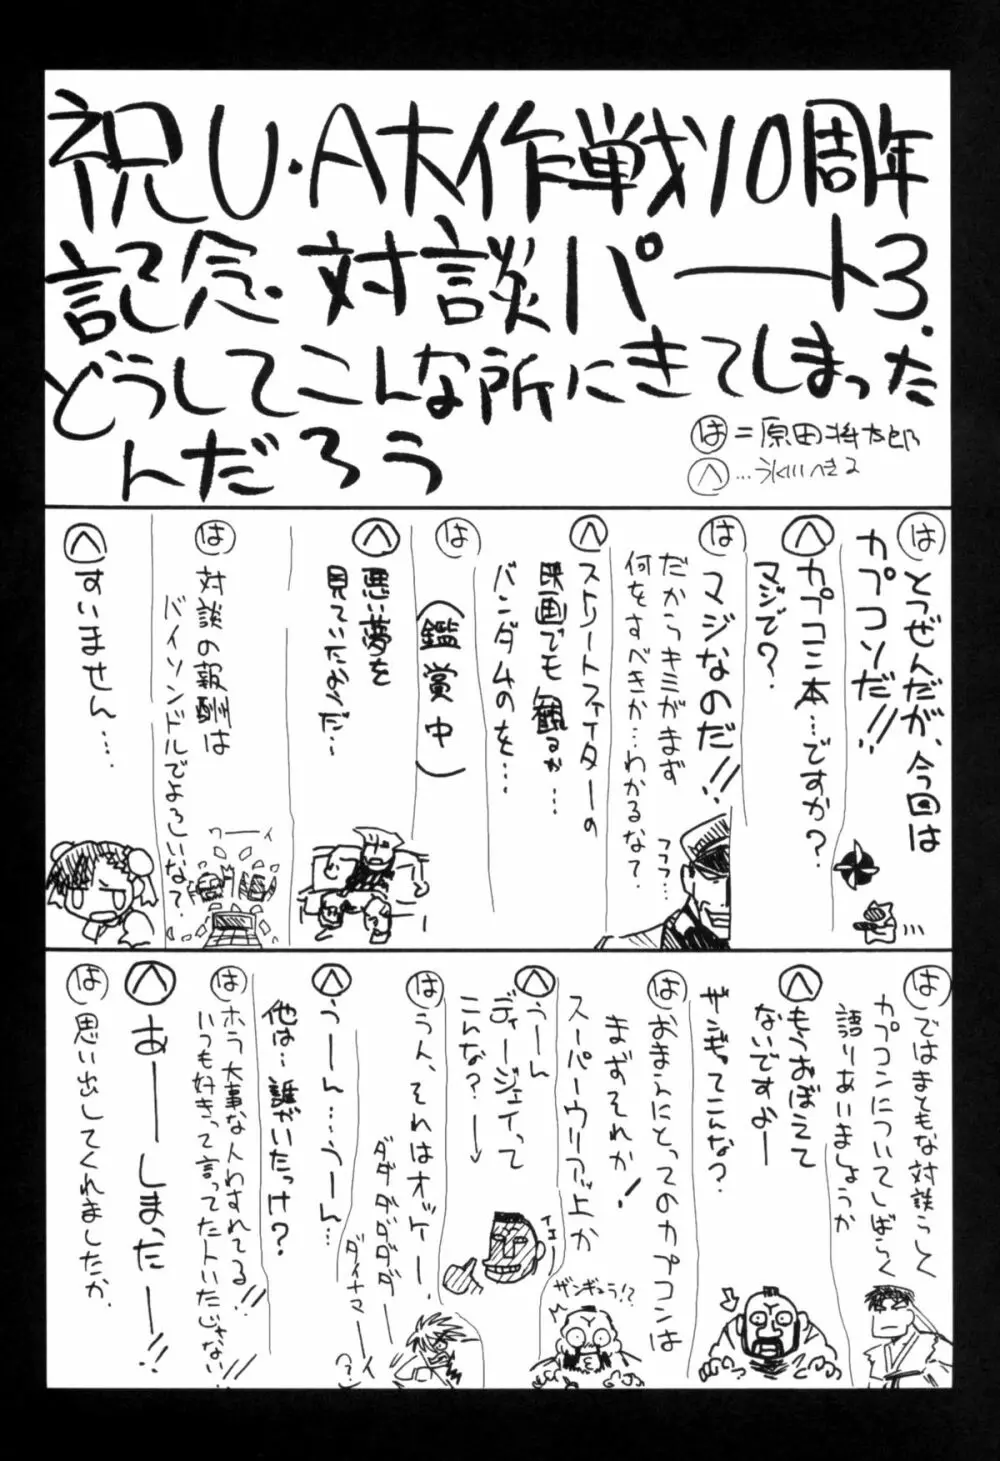 祝U・A大作戦10周年
記念・対談パート3.
どうしてこんな所にきてしまった
んだろう
は=原田将太郎
へ…うくいいへきる
はとつぜんだが、今回は
カプコンだ!!
へカプコン本…ですか?
マジで?
はマジなのだ!!
だからキミがまず
何をすべきか…わかるなて.
フフフ…
へストリートファイターの
映画でも観るか…
バンダムのを…
は
(鑑賞中)
へ悪い夢を
見ていたようだ…
は対談の報酬は
バイソンドルでよろしいなて.
ワーーイ
へすいません…
はではまともな対談らしく
カプコンについてしばらく
語りあいましょうか
へもうおぼえて
ないですよー
ザンギってこんな?
はおまえにとってのカプコンは
まずそれか!
スーパーウリアッ上か
ザンギュラ!?
へうーん
ディージェイって
こんな?→
イエー
はうん、それはオッケー.
ダダダダダダー
ダイナマーイ
へうーん…うーん…
他は…誰がいたっけ?
はホラ大事な人わすれてる!!
いつも好きって言ってた人いたじゃない!!
へあーーしまったーー!!
は思い出してくれましたか.